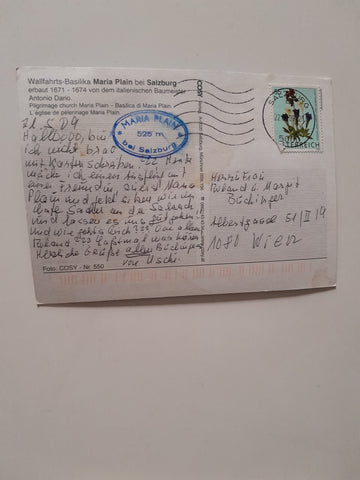 Wallfahrts-Basilika Maria Plain bei Salzburg
erbaut 1671 - 1674 von dem italienischen Baumeister
Antonio Dario.
Pilgrimage church Maria Plain - Basilica di Maria Plain
L'église de pélerinage Maria Plain
MARIA PLAIN
525 m
bei Salzburg
21.5.09
bin
ich nicht brav
mit Kartenschreiben ??? Heute
mache ich einen Ausflug mit
einer Freundin zuerst Maria
Plain und jetzt sitzen wir im
an der Salzach
und lassen es uns gut gehen
und wie geht's Euch??? Vor allem
Roland ???
Herzliche Grüße allen
von Uschi
Foto: COSY - Nr. 550
COSY
SALZBURG
ÖSTERREICH
Herrn & Frau
Roland u. Margit
Albertgasse 51/II/19
1080 Wien